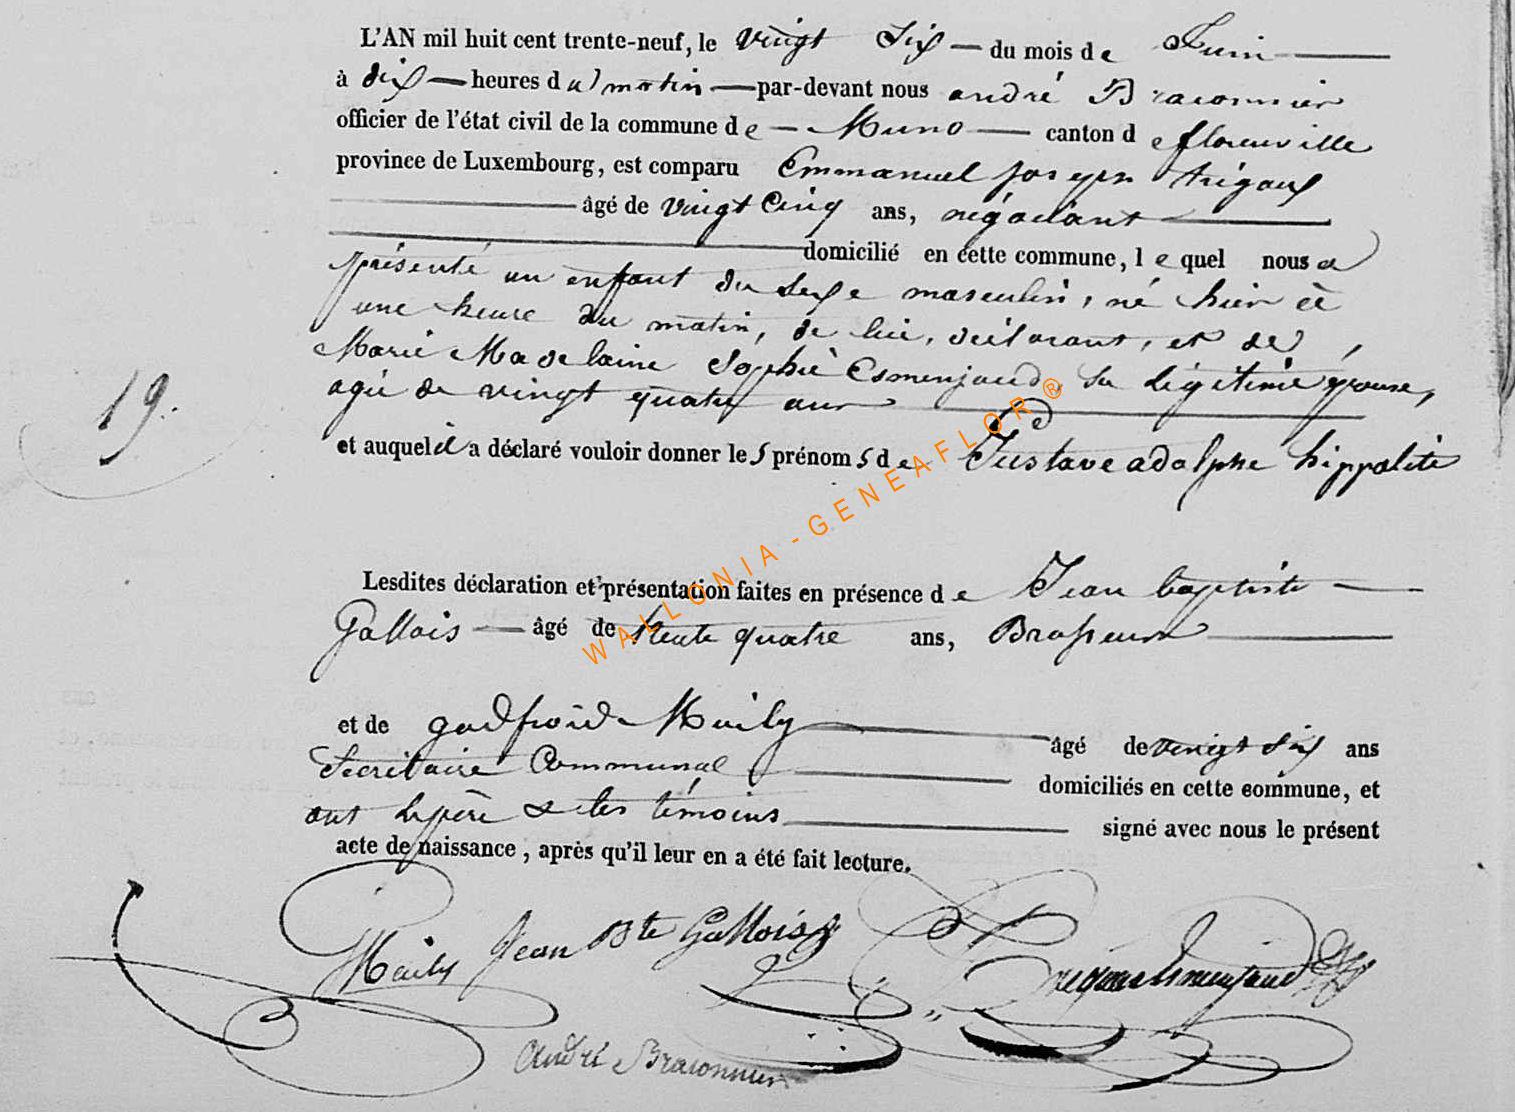 L'AN mil huit cent trente-neuf, le vingt Six du mois de Juin
à dix heures du matin par-devant nous andré Braconnier
officier de l'état civil de la commune de Muno canton de florenville
province de Luxembourg, est comparu Emmanuel joseph trigaux
âgé de vingt Cinq ans, négociant
domicilié en cette commune, lequel nous a
présenté un enfant du Sexe masculin, né hier à
une heure du matin, de lui, déclarant, et de
Marie Madelaine Sophie Esmenjaud, Sa légitime épouse,
agée de vingt quatre ans
19.
et auquel il a déclaré vouloir donner les prénoms de Gustave adolphe hippolite
Lesdites déclaration et présentation faites en présence de Jean baptiste
Gallois âgé de trente quatre ans, Brasseur
et de godfroid Maily âgé de vingt Six ans
Secrétaire Communal domiciliés en cette commune, et
ont le père & les témoins signé avec nous le présent
acte de naissance, après qu'il leur en a été fait lecture.
Mailly Jean Bte Gallois
andré Braconnier
WALLONIA - GENEAFLOR ®